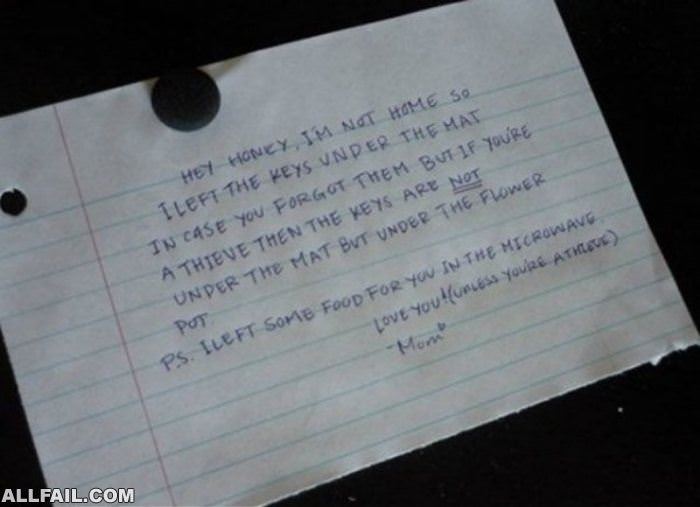 HEY HONEY, I'M NOT HOME SO
I LEFT THE KEYS UNDER THE MAT
IN CASE YOU FORGOT THEM BUT IF YOU'RE
A THIEVE THEN THE KEYS ARE NOT
UNDER THE MAT BUT UNDER THE FLOWER
POT.
P.S. I LEFT SOME FOOD FOR YOU IN THE MICROWAVE.
LOVE YOU! (UNLESS YOU'RE A THIEVE)
-Mom
ALLFAIL.COM